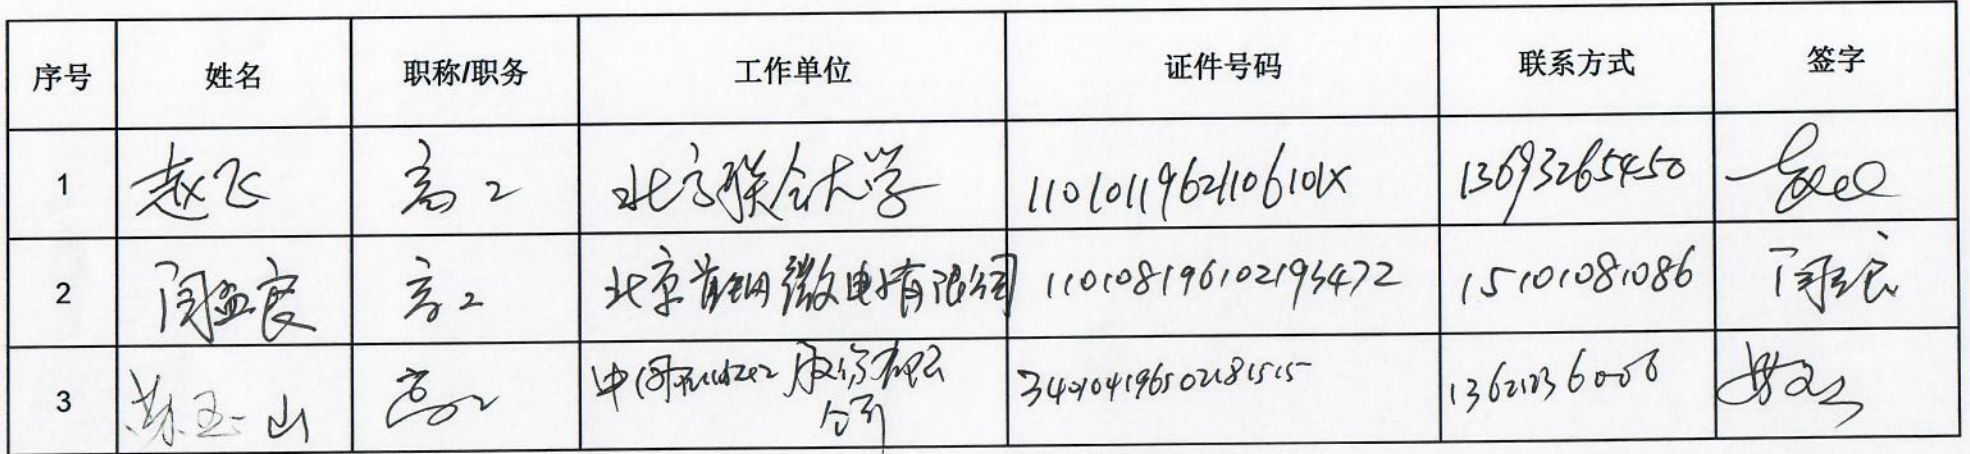 序号 姓名 职称/职务 工作单位 证件号码 联系方式 签字
1 赵飞 高工 北京联合大学 11010119621106101X 13693265450
2 闫孟良 高工 北京首钢微电子有限公司 110108196102193472 15101081086
3 山 高工 中国 股份有限 340104196502181515
公司